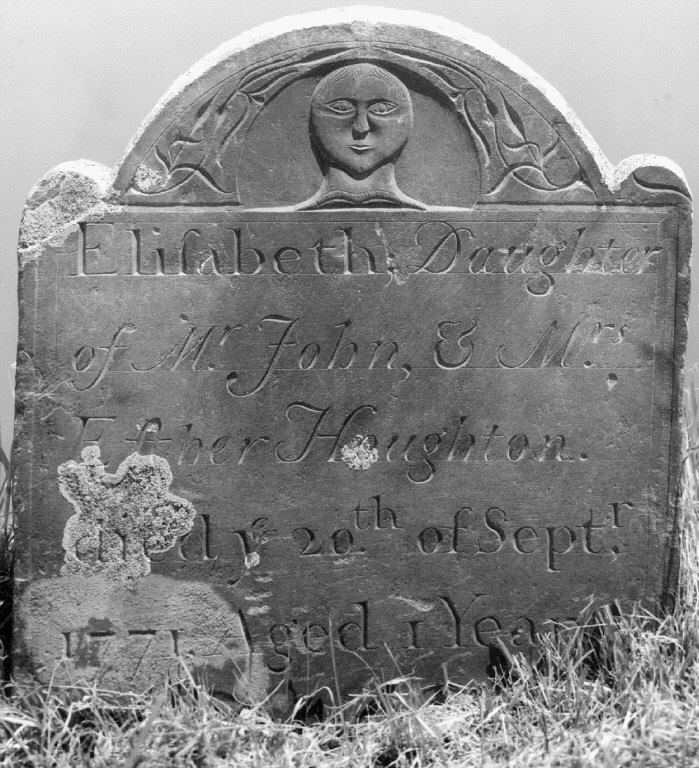 Eliſabeth, Daughter
of Mr. John, & Mrs.
Eſther Houghton.
died ye 20.th of Septr.
1771. Aged 1 Year